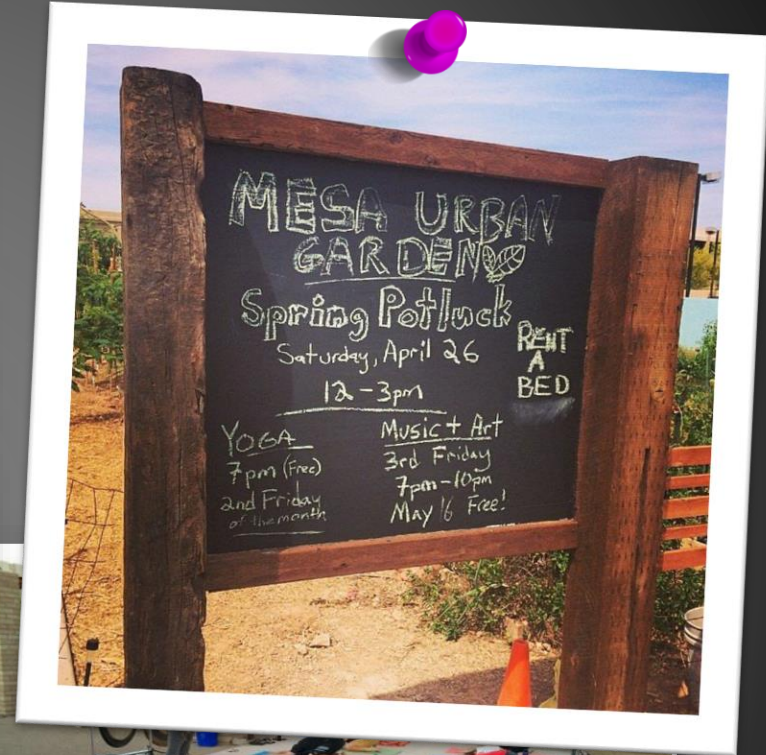 MESA URBAN
GARDEN
Spring Potluck
Saturday, April 26
12-3pm
RENT
A
BED
YOGA
7pm (Free)
2nd Friday
of the month
Music + Art
3rd Friday
7pm-10pm
May 16 Free!